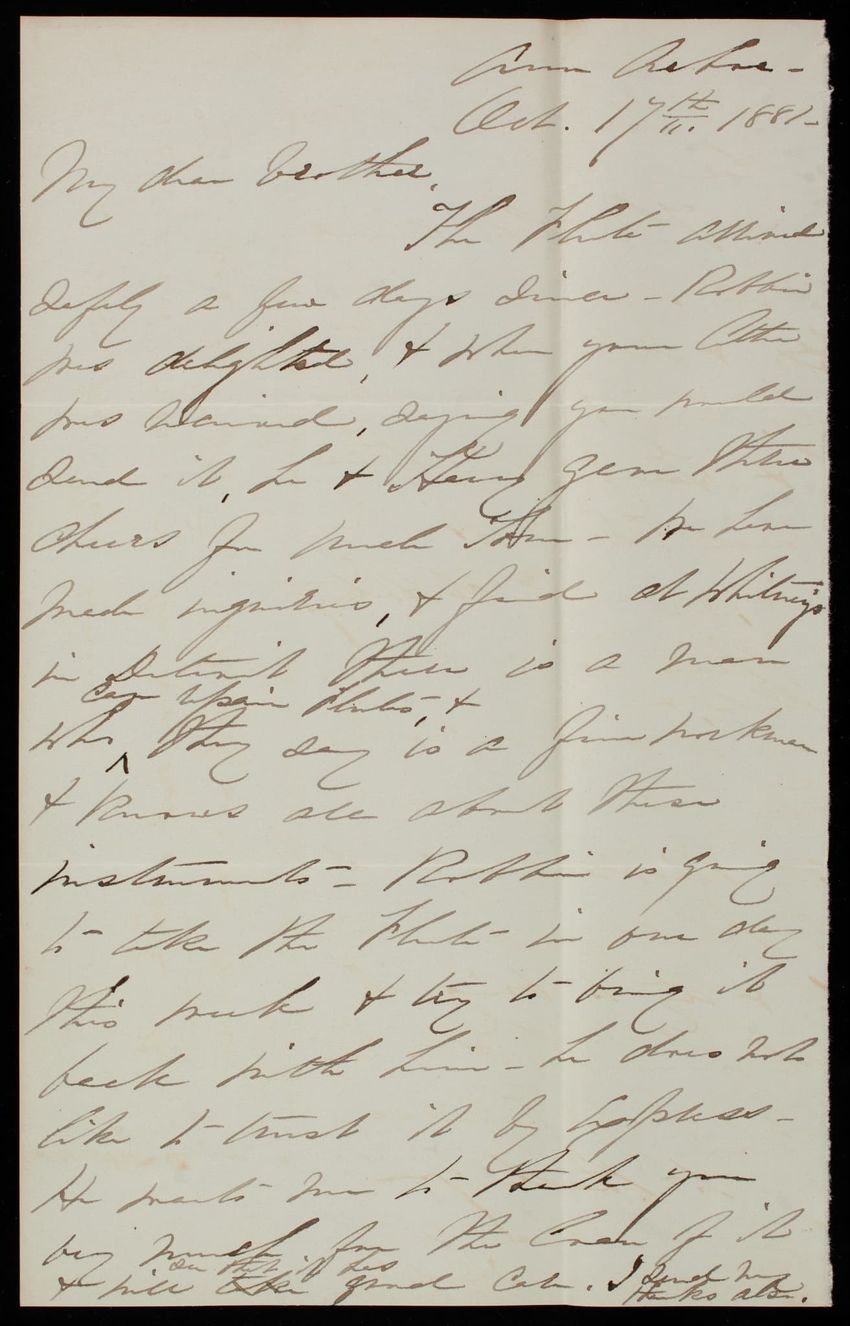 Ann Arbor -
Oct. 17th. 1881 -
My dear brother,
The Flute arrived
safely a few days since - Robbie
was delighted, & when your letter
was received, saying you would
send it, he & Harry gave three
cheers for Uncle Thom - We have
made inquiries, & find at Whitney's
in Detroit there is a man
can repair Flutes, &
who they say is a fine workman
& knows all about these
instruments - Robbie is going
to take the Flute in one day
this week & try to bring it
back with him - he does not
like to trust it by Express -
He wants me to thank you
very much for the loan of it
see that it has
& will take good care. I send my
thanks also.